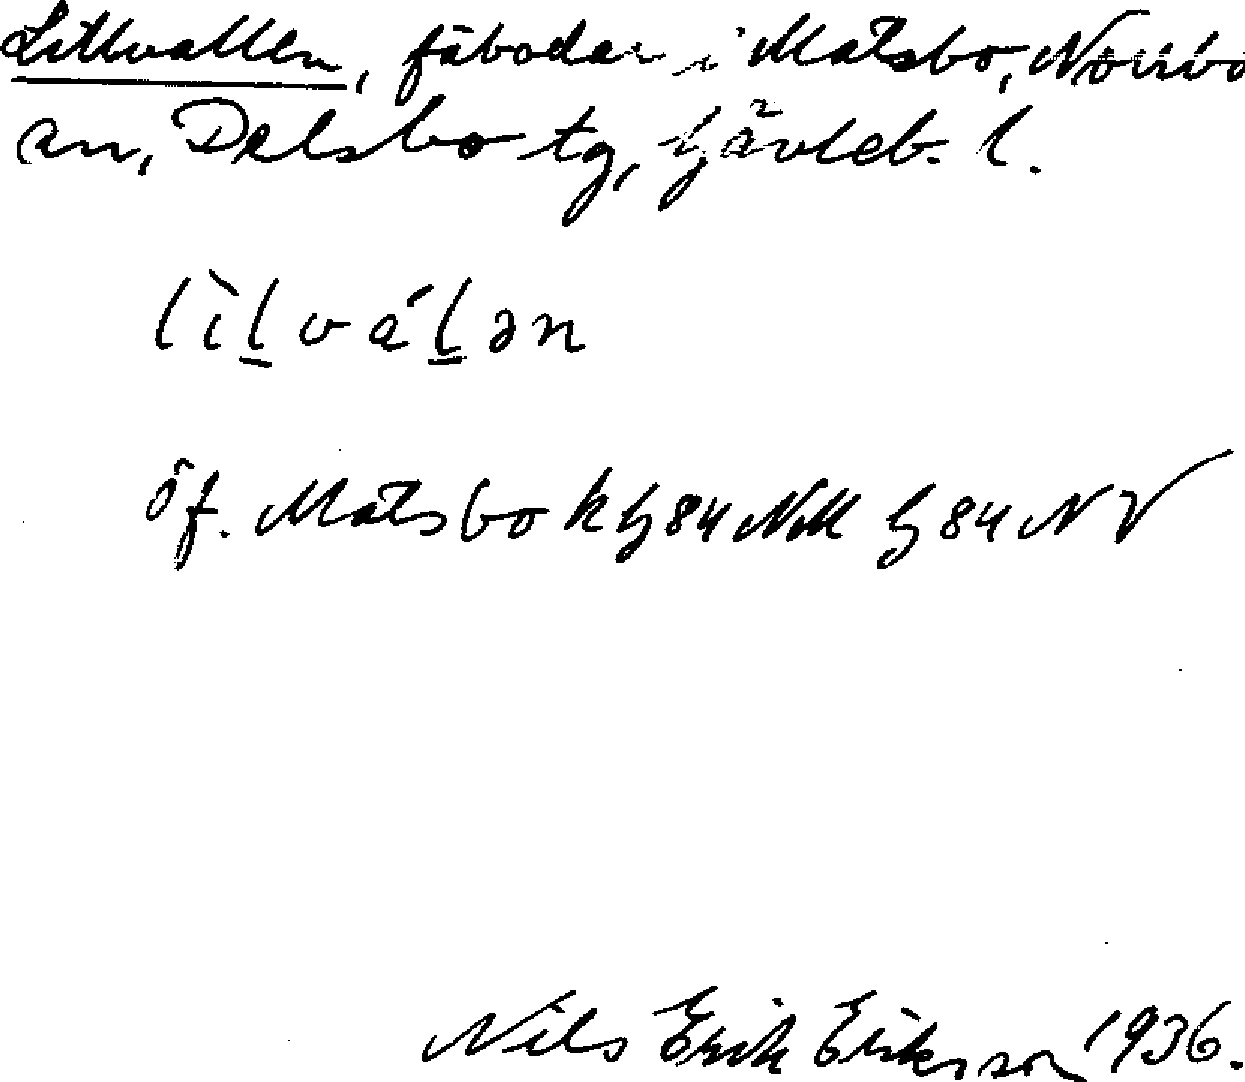 Lillvallen, fäbodar i Matsbo, Norrbo
an, Delsbo tg, Gävleb. l.
lìḻváḻən
öf. Matsbo k G84NM G84NV
Nils Erik Eriksson 1936.